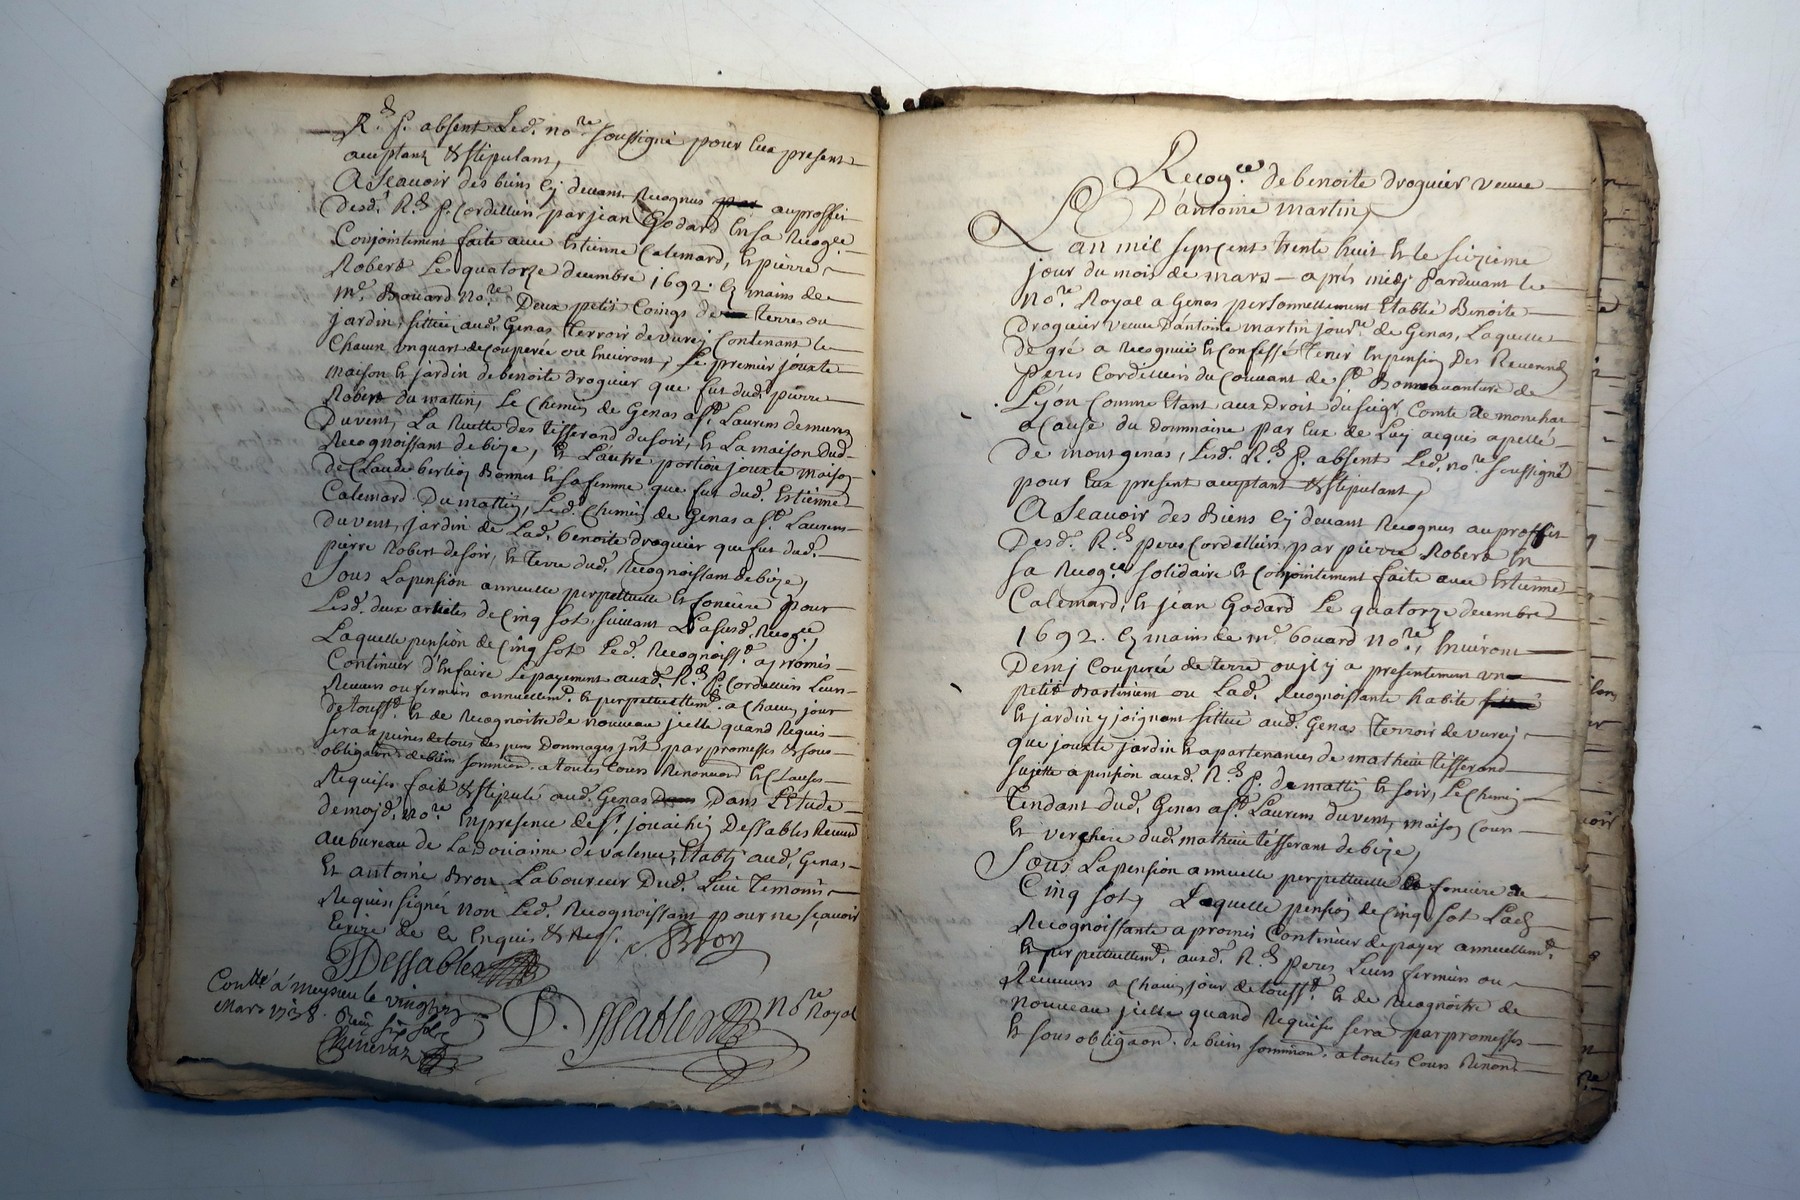 Rds. P. absent Led. nore. soussigné pour Eux present
acceptant & stipulant,
A Scauoir des biens Cy deuant Recognus au proffit
Desd. Rds. P. Cordelliers par jean Godard En sa Recogce
Conjointement faite auec Estienne Calemard, & pierre
Robert Le quatorze decembre 1692. Ez mains de
Me. Bouard nore. Deux petit Coings de terres ou
jardin, sittué aud. Genas Terroir de vurey Contenant le
Chacun un quart de Couperée ou Enuiront, Le premier jouxte
maison & jardin de benoite droguier que fut dud. pierre
Robert du mattin, Le Chemin de Genas a St. Laurens de mures
Du vent, La Ruette des Tisserand du soir, & La maison Dud.
Recognoissant de bize, & L'autre portion jouxte maison
de Claude berlioz Bonnet & sa femme que fut dud. Estienne
Calemard Du mattin, Led. Chemin de Genas a St. Laurens
du vent, jardin de Lad. benoite droguier que fut dud.
pierre Robert de soir, & Terre dud. Recognoissant de bize,
Sous La pension annuelle perpettuelle & fonciere pour
Lesd. deux articles de Cinq sol, suiuant La susd. Recogce,
Laquelle pension de Cinq sols Led. Recognoisst. a promis
Continuer d'En faire Le payement auxd. Rds. P. Cordelliers Leurs
Receueurs ou fermiers annuellemt. & perpettuellemt. a Chacun jour
de toussts. & de Recognoitre de nouueau jcelle quand Requis
sera a peines de tous despens Dommages jnt. par promesses & sous
obligaon. de biens soumission. a toutes Cours Renonciaon & Clauses
Requises fait & stipulé aud. Genas Dans L'Etude
de mojd. nore. En presence de sr. joüachin Dessables Receueur
au bureau de La doüanne de valence, Etably aud. Genas
& antoine Bron Laboureur Dud. Lieu Temoins
Requis signéz non Led. Recognoissant pour ne sçauoir
Ecrire de ce Enquis & Reqs.
Bron
JDessables
Conttlé à meysieu le vingt
Mars 1738.
Reçu six sols
Chenevaz
D. Dessables nore Royal
Recogce. de benoite droguier veuue
D'antoine martin,
L'an mil sept cent trente huit & le sixieme
jour du mois de mars apres midy Pardeuant le
nore. Royal a Genas personnellement Etablie Benoite
droguier veuue D'antoine martin jourer. de Genas, Laquelle
de gré a Recognüe & Confessé Tenir En pension Des Reuerends
Peres Cordelliers du Couuant de St. Bonnauanture de
Lÿon Comme Etant aux Droit du seigr. Comte de monchat
a Cause du Dommaine par Eux de Luy acquis apellé
De mont genas, Lesd. Rds. P. absent Led. nore. soussigné
pour Eux present acceptant & stipulant,
A Scauoir des Biens Cy deuant Recognus au proffit
Desd. Rds. peres Cordelliers par pierre Robert En
sa Recogce. solidaire & Conjointement faite auec Estienne
Calemard, & jean Godard Le quatorze decembre
1692. Ez mains de me. bouard nore., Enuiront
Demj Couperée de terre ou jl y a presentement un
petit Bastiment ou Lad. Recognoissante habite
& jardin y joignant sittué aud. Genas Terroir de vurey
que jouxte jardin & apartenances de mathieu tisserand
sujette a pension auxd. Rds. P. de mattin & soir, Le Chemin
Tendant dud. Genas a St. Laurens du vent, maison Cour
& verchere dud. mathieu tisserant de bize,
Sous La pension annuelle perpettuelle & fonciere de
Cinq sols, Laquelle pension de Cinq sols Lad.
Recognoissante a promis Continuer de payer annuellemt.
& perpettuellemt. auxd. Rds. Peres Leurs fermiers ou
Receueurs a Chacun jour de toussts. & de Recognoitre de
nouueau jcelle quand Requise sera par promesses
& sous obligaon. de biens soumission. a toutes Cours Renon.